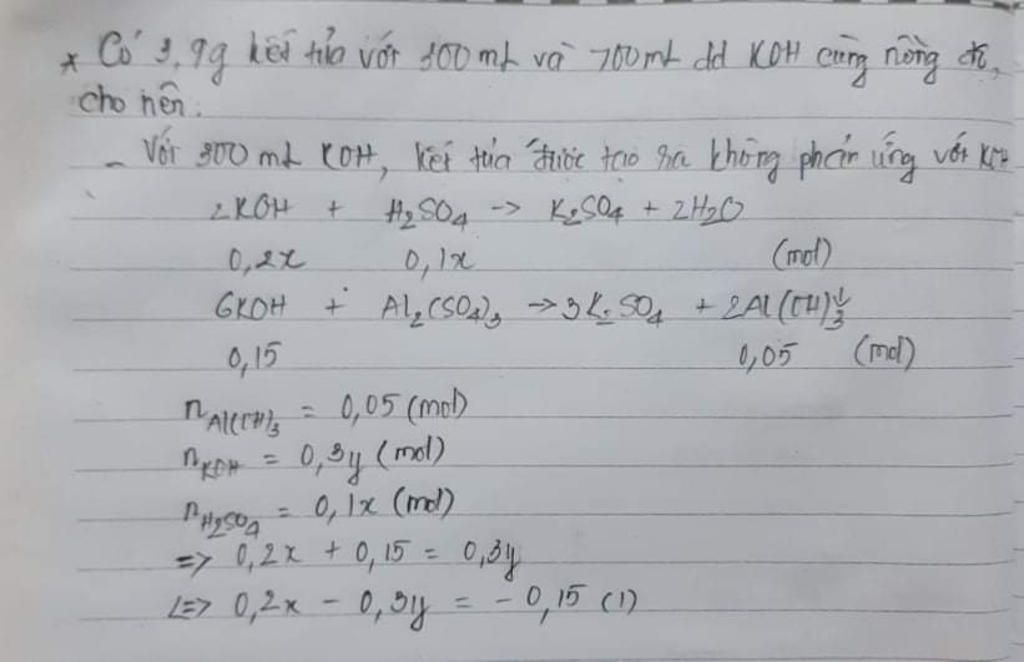 * Có 3,9g kết tủa với 300 mL và 700 mL dd KOH cùng nồng độ,
cho nên:
- Với 300 mL KOH, kết tủa được tạo ra không phản ứng với KOH
2KOH + H₂SO₄ -> K₂SO₄ + 2H₂O
0,2x 0,1x (mol)
6KOH + Al₂(SO₄)₃ -> 3K₂SO₄ + 2Al(OH)₃↓
0,15 0,05 (mol)
n Al(OH)₃ = 0,05 (mol)
n KOH = 0,3y (mol)
n H₂SO₄ = 0,1x (mol)
=> 0,2x + 0,15 = 0,3y
<=> 0,2x - 0,3y = - 0,15 (1)